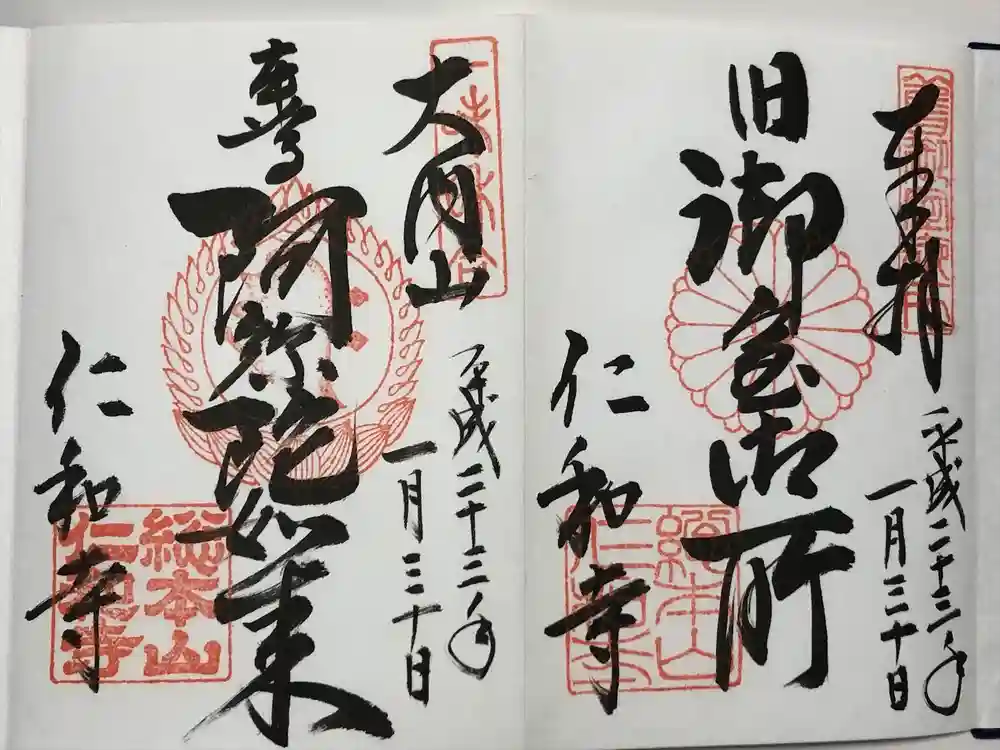 奉拝
平成二十三年
一月三十日
旧御室御所
仁和寺
總本山
仁和寺
大内山
平成二十三年
一月三十日
阿弥陀如来
仁和寺
総本山
仁和寺